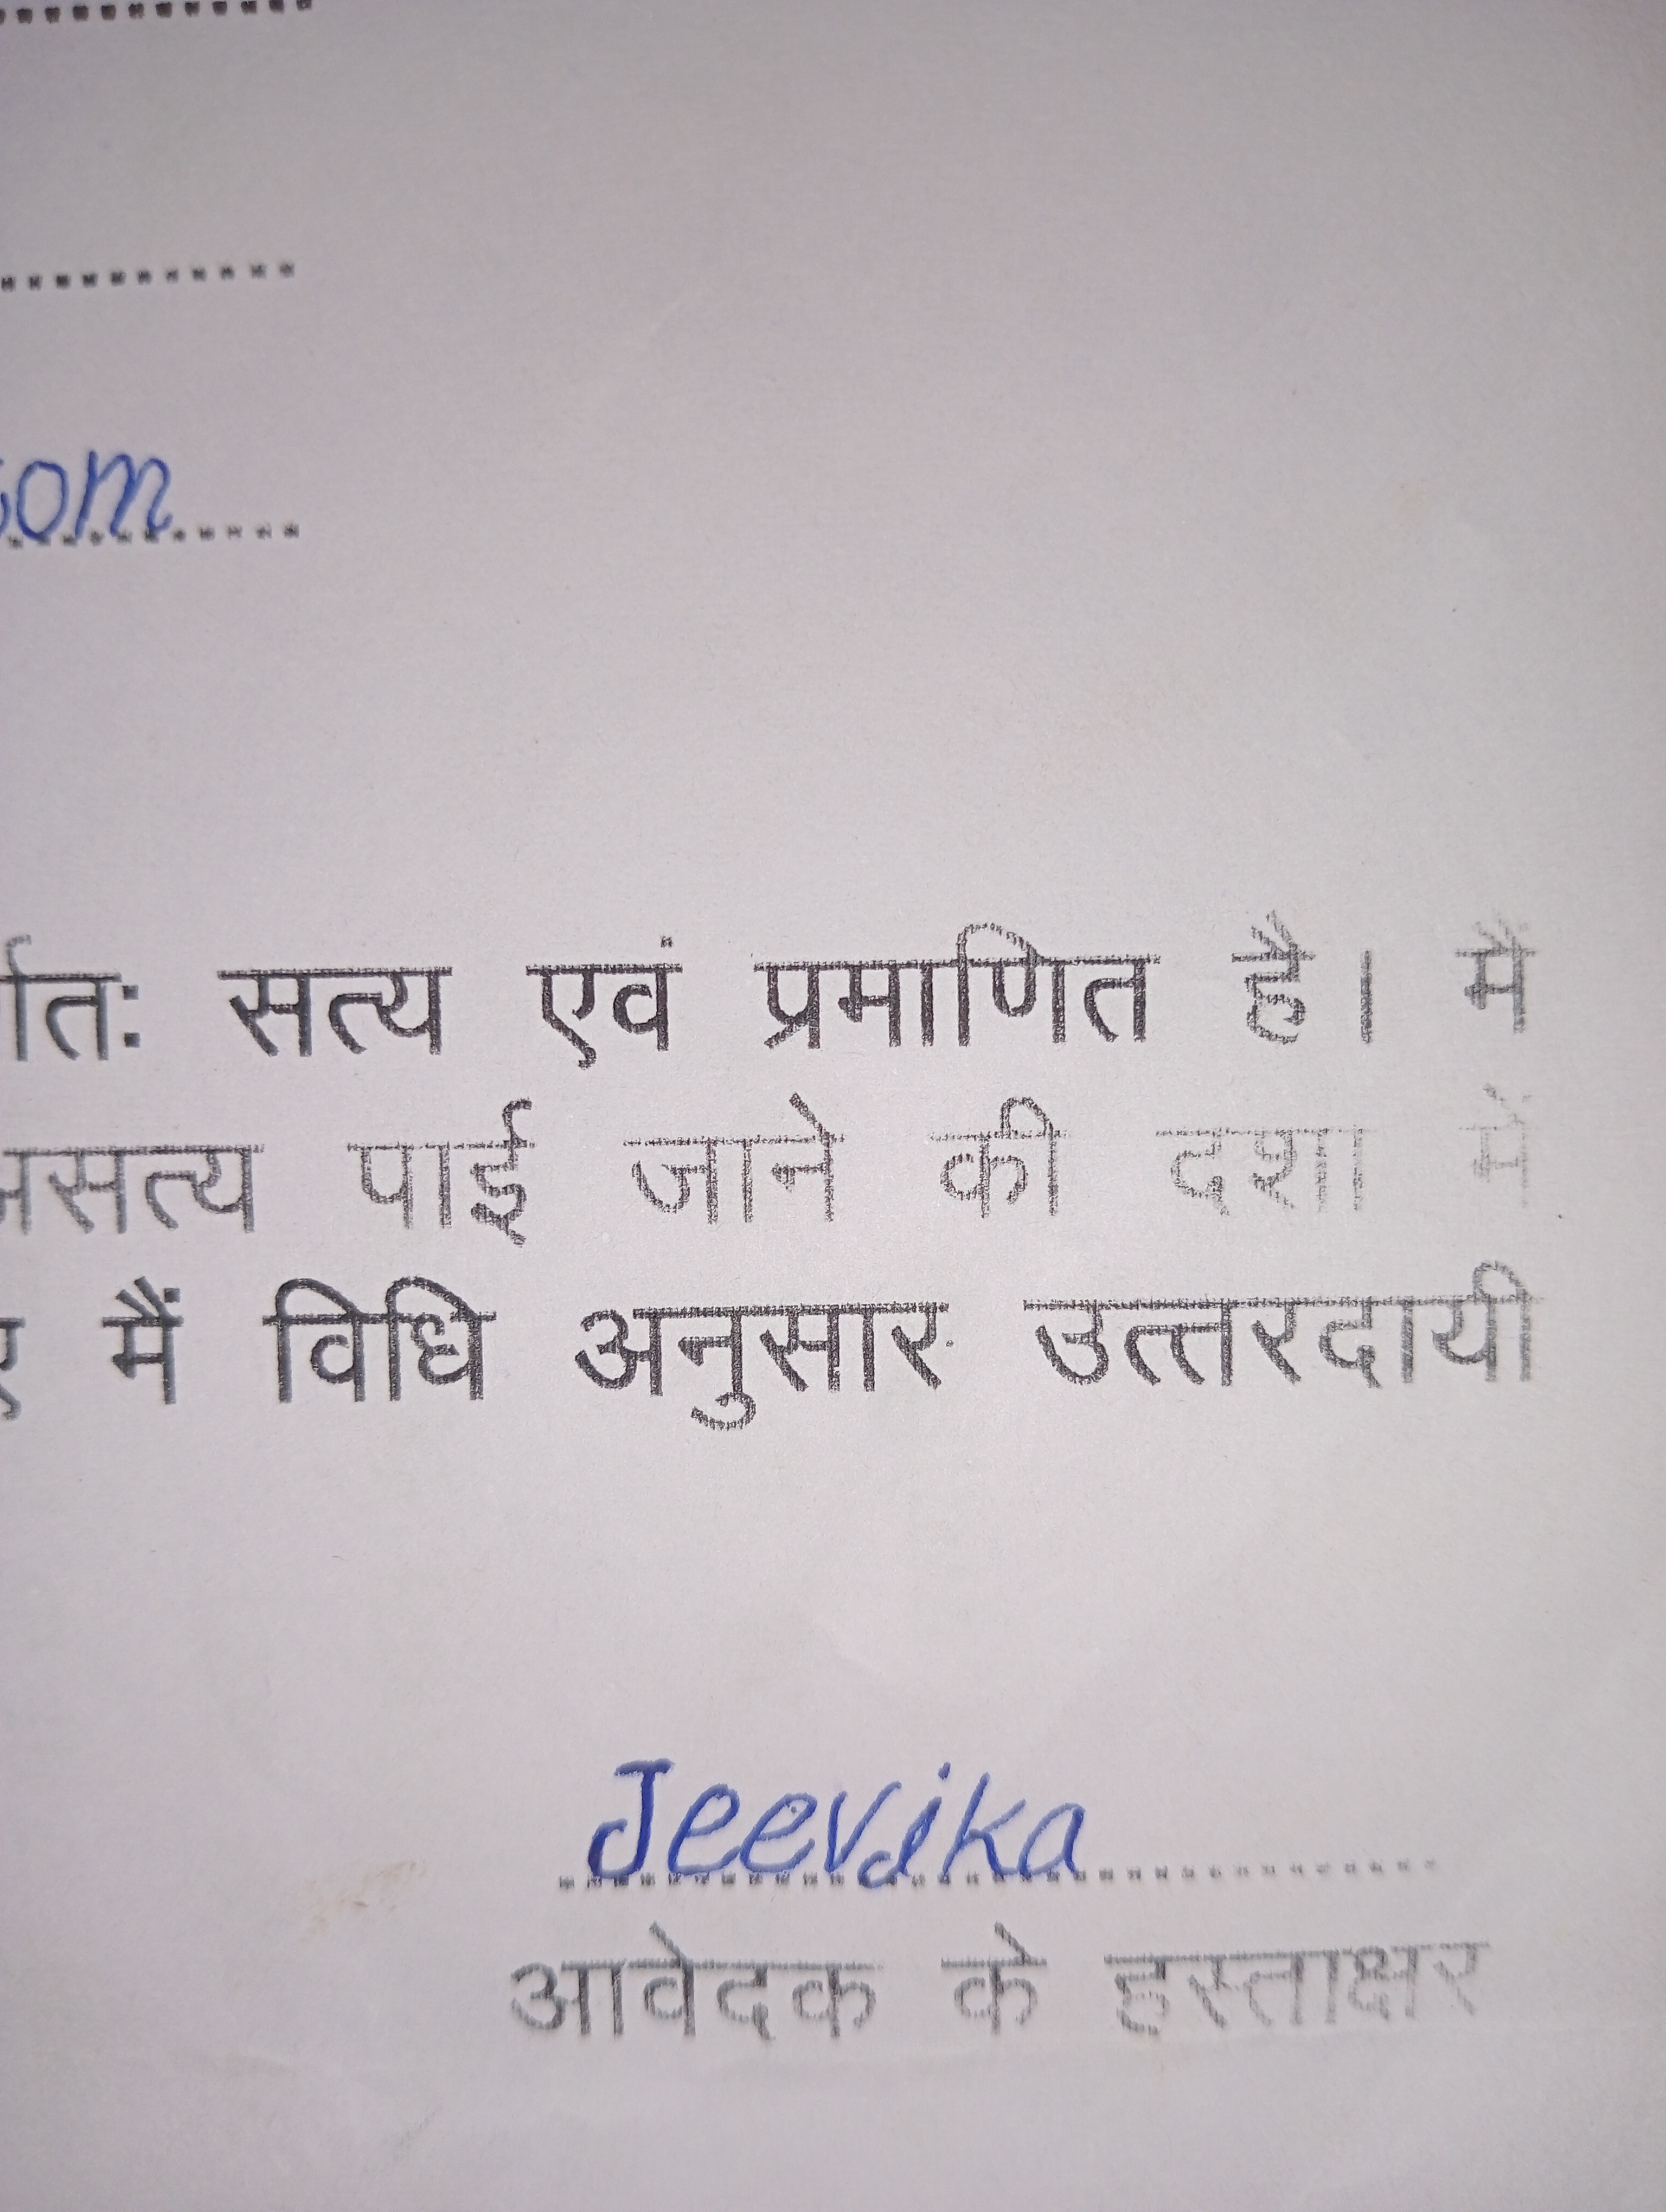 सत्य एवं प्रमाणित है। मैं
पाई जाने की दशा में
मैं विधि अनुसार उत्तरदायी
Jeevika
आवेदक के हस्ताक्षर